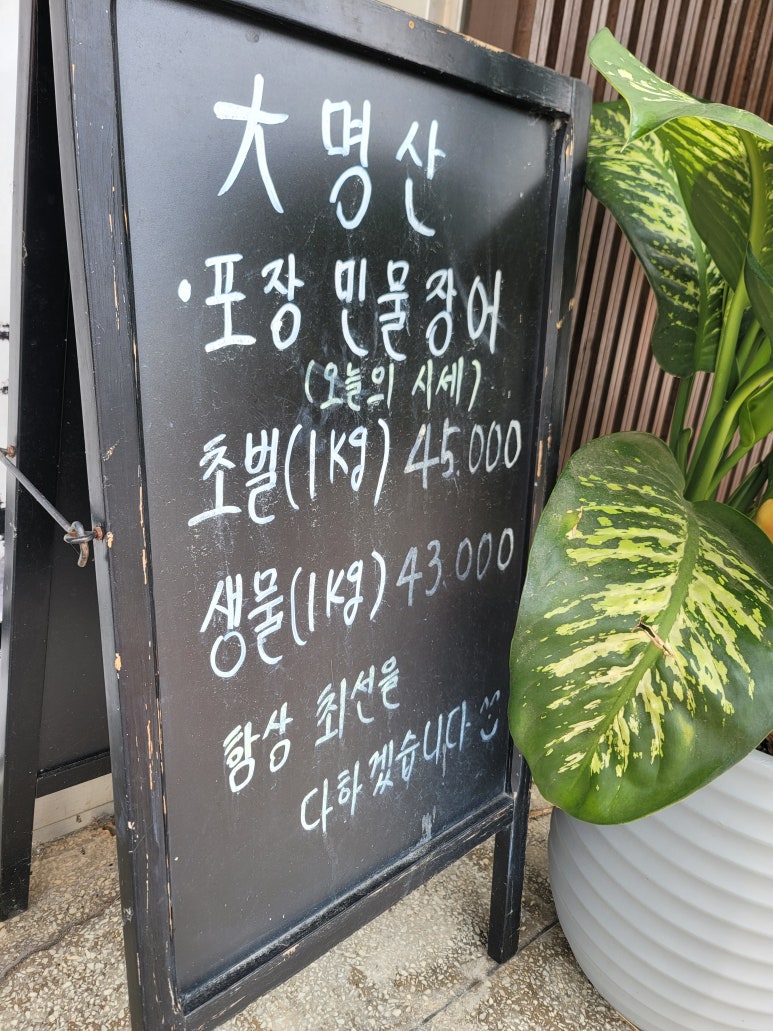 大명산
·포장 민물장어
(오늘의 시세)
초벌(1kg) 45.000
생물(1kg) 43.000
항상 최선을
다하겠습니다